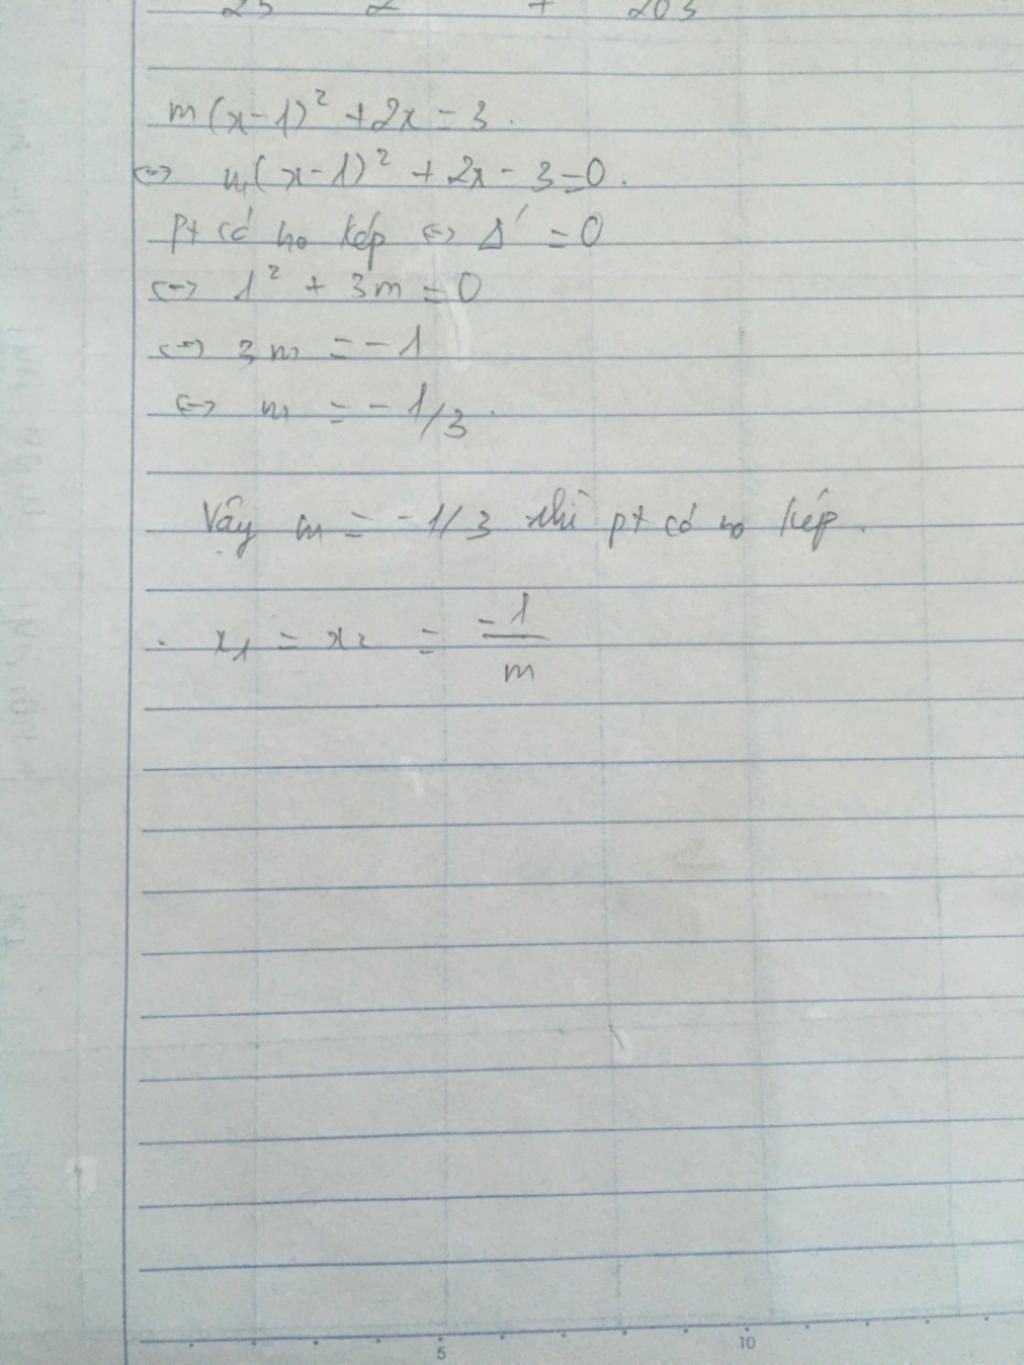 m(x-1)² + 2x = 3.
<=> m(x-1)² + 2x - 3 = 0.
Pt có no kép <=> Δ' = 0
<=> 1² + 3m = 0
<=> 3m = -1
<=> m = -1/3.
Vậy m = -1/3 thì pt có no kép.
x₁ = x₂ = -1/m
5 10